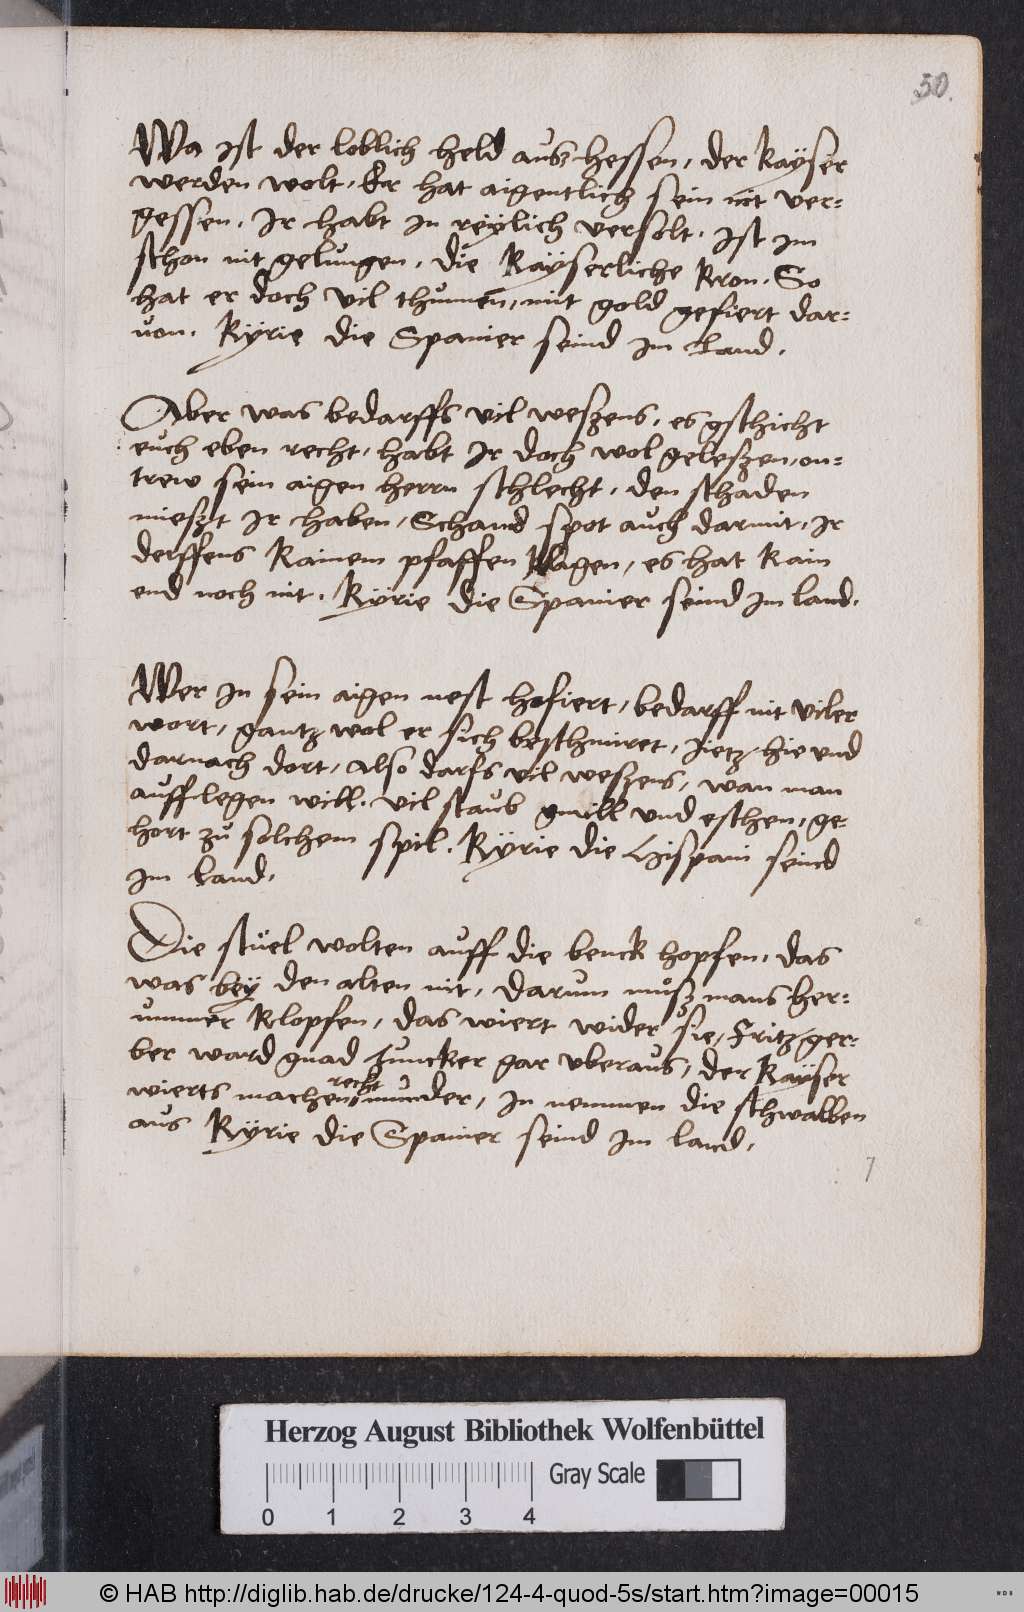 50.
Wa ist der loblich held ausz hessen, der Kaÿser
werden wolt, Er hat aigentlich sein nit ver=
gessen, Ir habt in reÿlich versolt, ist im
schon nit gelungen, die Kaÿserliche Kron, So
hat er doch vil thumen, mit gold gefiert dar=
von, Kÿrie die Spanier seind im Land,
Aber was bedarffs vil weszens, es gschicht
euch eben recht, habt Ir doch wol geleszen, on=
trew sein aigen herrn schlecht, den schaden
mieszt Ir haben, Schand spot auch darmit, Ir
derffens Kainem pfaffen Klagen, es hat Kain
end noch nit, Kÿrie die Spanier seind im land,
Wer in sein aigen nest hofiert, bedarff nit viler
wort, gantz wol er sich beschmiret, Jietz, hie und
darnach dort, also darfs vil weszens, wan man
aufflegen will, vil staub gmill und eschen, ge=
hort zů solchem spil, Kÿrie die Hispani seind
im land,
Die stüel wolten auff die benck hopfen, das
was beÿ den alten nit, darum můsz mans her=
ummer Klopfen, das wiert wider sie, Fritz ger=
ber ward gnad Juncker gar uberaus, der Kaÿser
wierts machen recht munder, in nemmen die schwalben
aus Kÿrie die Spanier seind im land,
7
Herzog August Bibliothek Wolfenbüttel
Gray Scale
0 1 2 3 4
© HAB http://diglib.hab.de/drucke/124-4-quod-5s/start.htm?image=00015